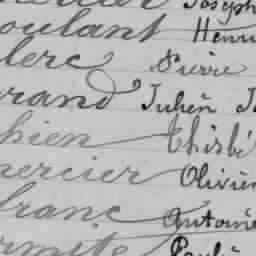 Joseph
oulant Henri
lerc Pierre
rand Julien
hien Thisbé
mercier Olivier
franc Antoine
ermite